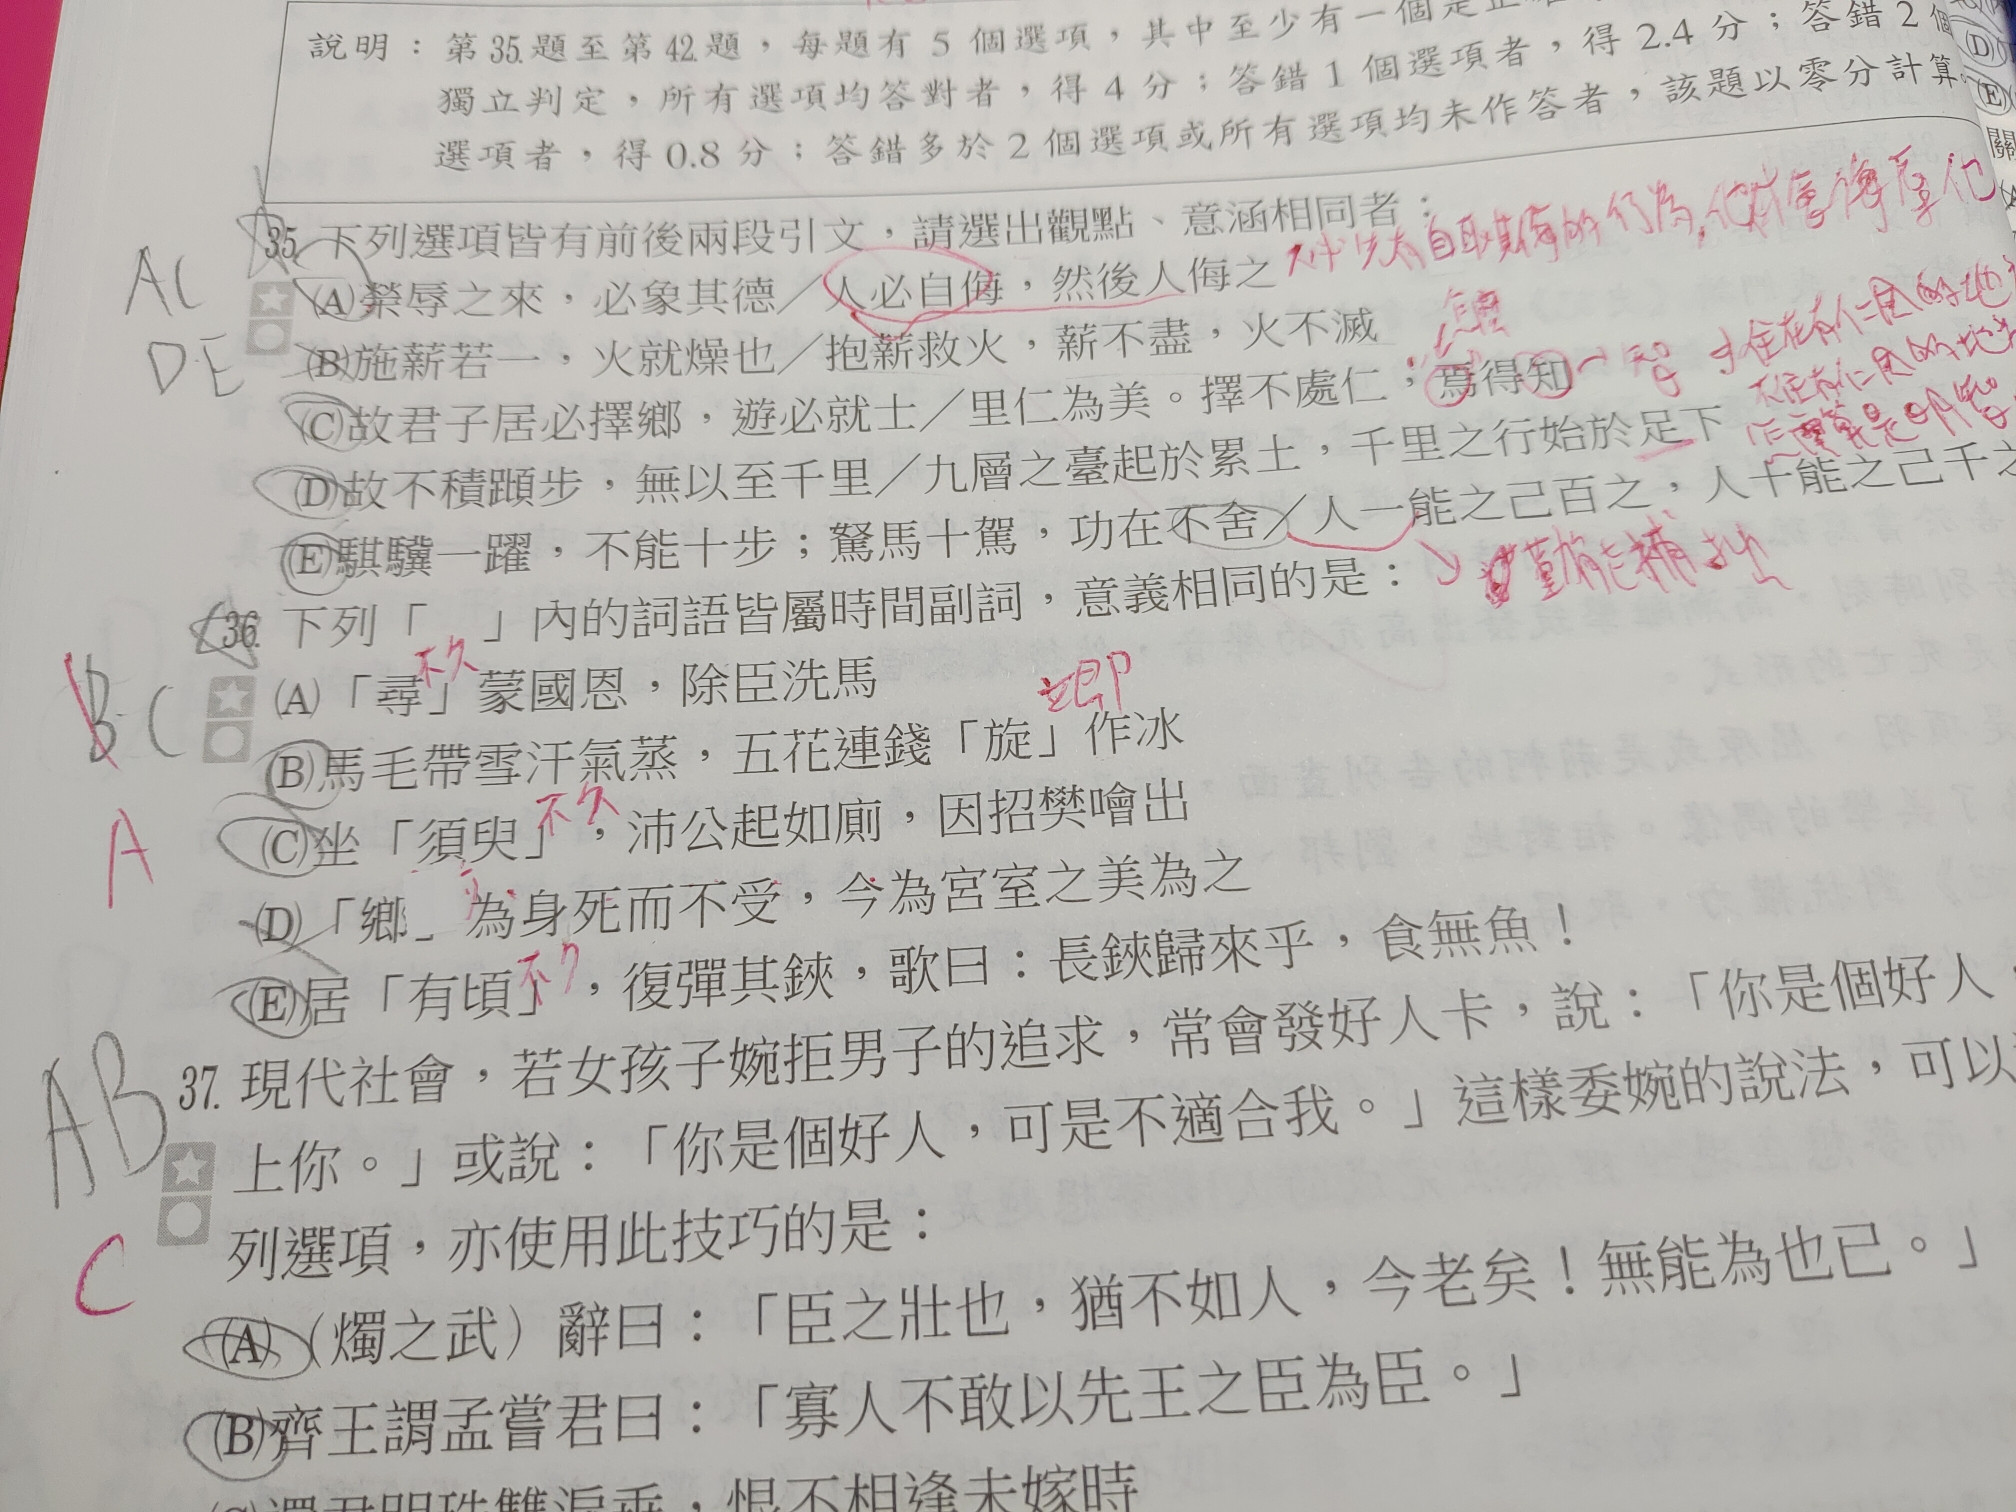 說明：第35.題至第42.題，每題有5個選項，其中至少有一個是
獨立判定，所有選項均答對者，得4分；答錯1個選項者，得2.4分；答錯2個
選項者，得0.8分；答錯多於2個選項或所有選項均未作答者，該題以零分計算。
35. 下列選項皆有前後兩段引文，請選出觀點、意涵相同者：
AC
DE
(A)榮辱之來，必象其德／人必自侮，然後人侮之
(B)施薪若一，火就燥也／抱薪救火，薪不盡，火不滅
(C)故君子居必擇鄉，遊必就士／里仁為美。擇不處仁，焉得知
(D)故不積蹞步，無以至千里／九層之臺起於累土，千里之行始於足下
(E)騏驥一躍，不能十步；駑馬十駕，功在不舍／人一能之己百之，人十能之己千之
勤能補拙
36. 下列「　」內的詞語皆屬時間副詞，意義相同的是：
BC
A
不久
(A)「尋」蒙國恩，除臣洗馬
立即
(B)馬毛帶雪汗氣蒸，五花連錢「旋」作冰
不久
(C)坐「須臾」，沛公起如廁，因招樊噲出
(D)「鄉」為身死而不受，今為宮室之美為之
不久
(E)居「有頃」，復彈其鋏，歌曰：長鋏歸來乎，食無魚！
AB
C
37. 現代社會，若女孩子婉拒男子的追求，常會發好人卡，說：「你是個好人，
上你。」或說：「你是個好人，可是不適合我。」這樣委婉的說法，可以
列選項，亦使用此技巧的是：
(A)（燭之武）辭曰：「臣之壯也，猶不如人，今老矣！無能為也已。」
(B)齊王謂孟嘗君曰：「寡人不敢以先王之臣為臣。」
(C)還君明珠雙淚垂，恨不相逢未嫁時